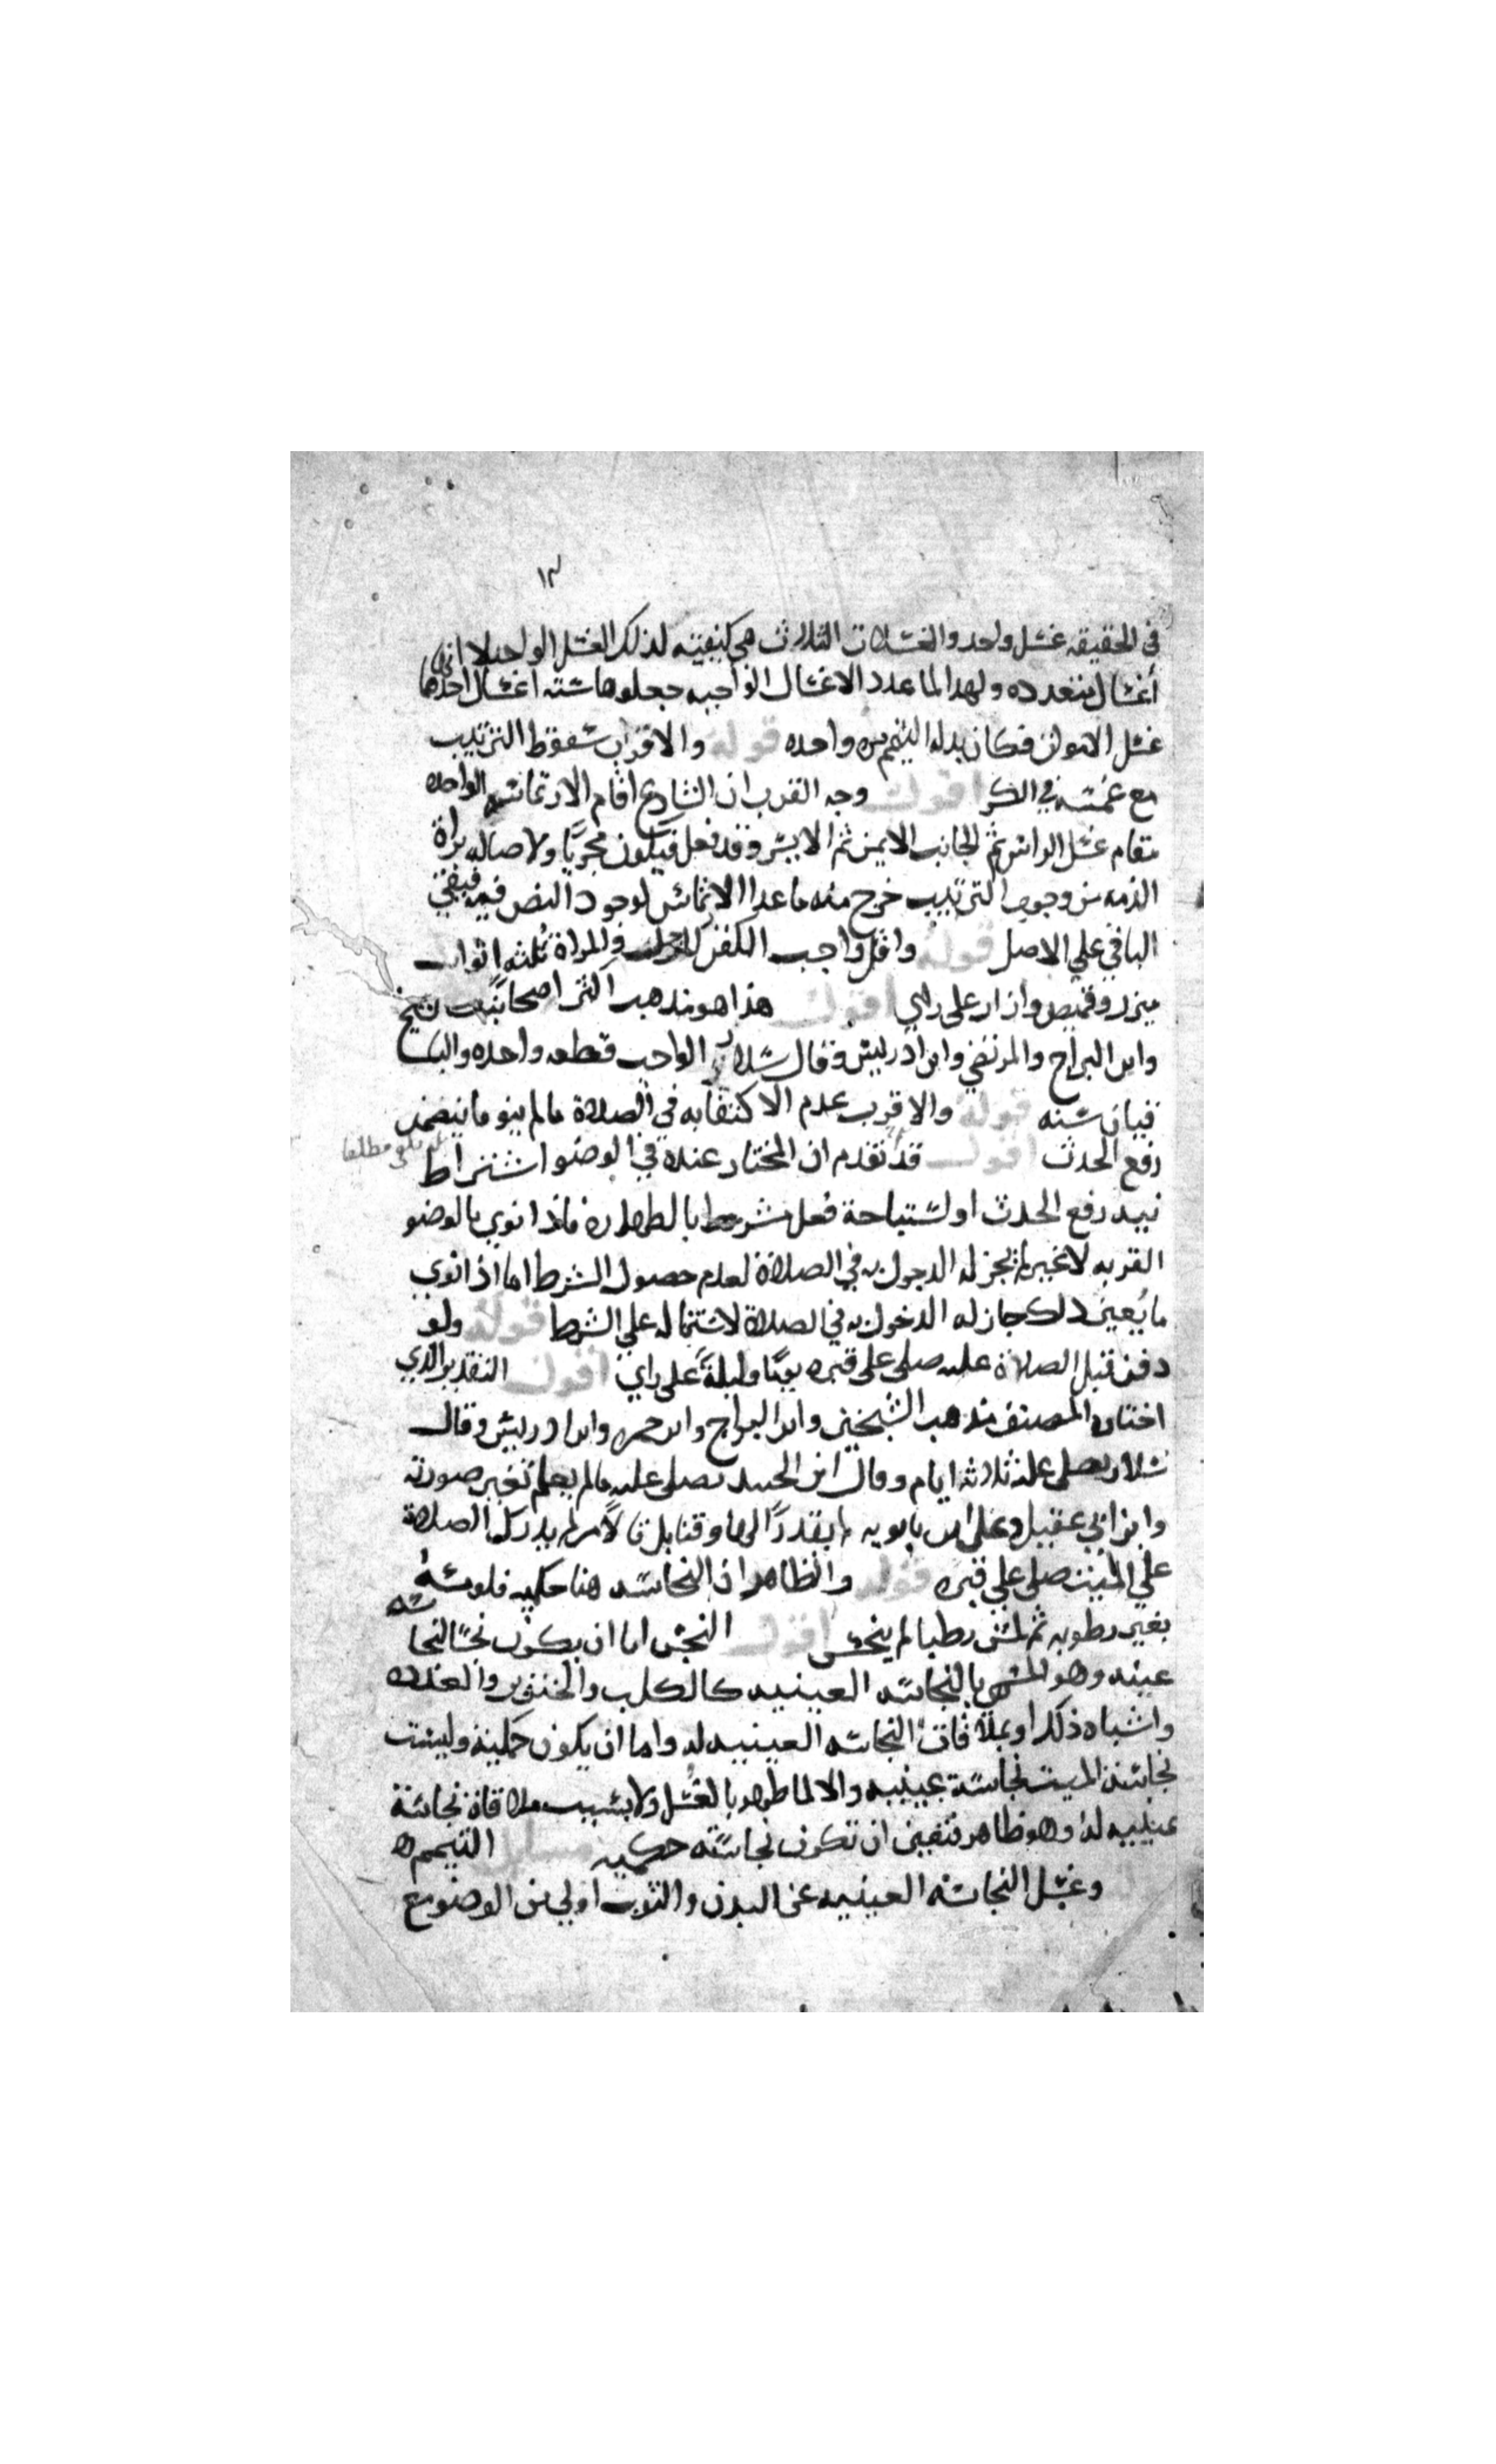 ١٣
في الحقيقه غسل واحد والغسلات الثلاث هي كيفيته لذلك الغسل الواحد لا انها
أغسال متعدده ولهدا لما عدد الاغسال الواجبه جعلوها سته اغسال احدها
غسل الاموات فكان بدله التيمم مره واحده قوله والاقرب سقوط الترتيب
مع غمسه في الكر اقول وجه القرب ان الشارع اقام الارتماسه الواحده
مقام غسل الراس ثم الجانب الايمن ثم الايسر وقد فعل فيكون مجزيا ولاصاله براة
الذمه من وجوب الترتيب خرج منه ماعدا الارتماس لوجود النص فيه فيبقي
الباقي علي الاصل قوله واقل واجب الكفن للرجل والمراة ثلثه اثواب
ميزر وقميص وازار على راي اقول هذا هو مذهب اكثر اصحابنا كالشيخ
وابن البراج والمرتضي وابن ادريس وقال سلار الواجب قطعه واحده والباـ
قيان سنه قوله والاقرب عدم الاكتفا به في الصلاة مالم ينو مايتضمن
رفع الحدث اقول قد تقدم ان المختار عنده في الوضو اشتراط
مطلقا
نيه رفع الحدث او استباحة فعل مشروط بالطهاره فاذا نوي بالوضو
القربه لاغير لم يجز له الدخول به في الصلاة لعدم حصول الشرط اما اذا نوي
ما يعين ذلك جاز له الدخول به في الصلاة لاشتماله علي الشرط قوله ولو
دفن قبل الصلاة عليه صلى على قبره يوما وليلة على راي اقول التقدير الذي
اختاره المصنف مذهب الشيخين وابن البراج وابن حمزه وابن ادريس وقال
سلار يصلى عليه ثلاثه ايام وقال ابن الجنيد يصلى عليه مالم يعلم تغير صورته
وابن ابي عقيل وعلي ابن بابويه لم يقدرا لها وقتا بل قالا من لم يدرك الصلاة
علي الميت صلى علي قبره قوله والظاهر ان النجاسه هنا حكميه فلو مسه
بغير رطوبه ثم لمس رطبا لم ينجس اقول النجس اما ان يكون نجسا لنجاسه
عينه وهو المسمى بالنجاسه العينيه كالكلب والخنزير والعذره
واشباه ذلك او بملاقات النجاسه العينيه له واما ان يكون حكمية وليست
نجاسة الميت نجاسة عينيه والا لما طهر بالغسل ولا بسبب ملاقاة نجاسة
عينيه له وهو ظاهر فتعين ان تكون نجاسته حكميه مسايل التيمم ه
وغسل النجاسه العينيه عن البدن والثوب اولي من الوضو مع